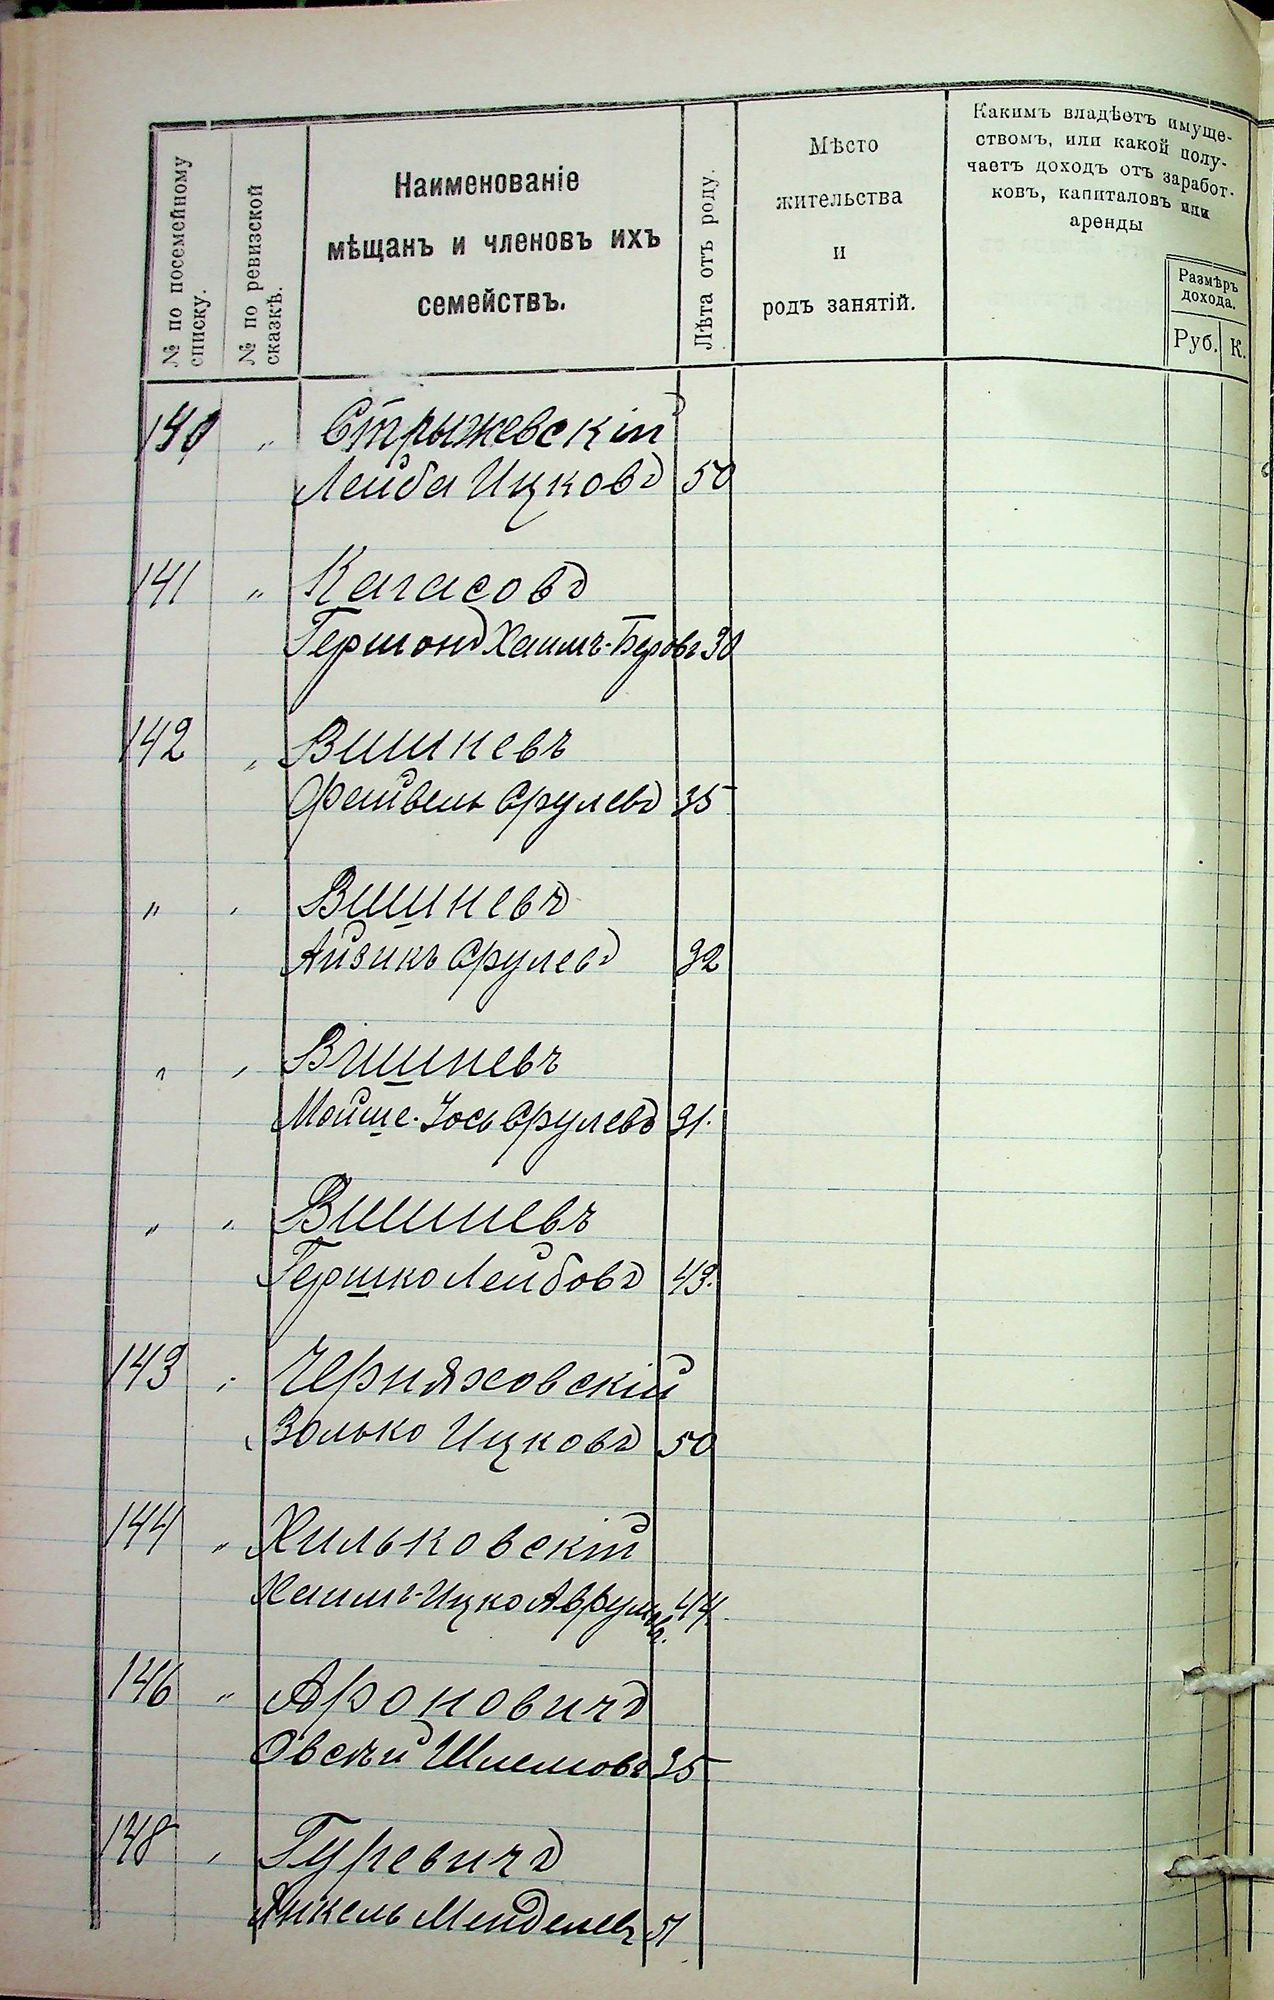 № по посемейному
списку.
№ по ревизской
сказкѣ.
Наименованіе
мѣщанъ и членовъ ихъ
семействъ.
Лѣта отъ роду.
Мѣсто
жительства
и
родъ занятій.
Какимъ владѣетъ имуще-
ствомъ, или какой полу-
чаетъ доходъ отъ заработ-
ковъ, капиталовъ или
аренды
Размѣръ
дохода.
Руб. К.
140 " Стрыжевскій
Лейба Ицковъ 50
141 " Кагасовъ
Гершонъ Хаимъ-Беровъ 30
142 " Вишневъ
Файвель Срулевъ 35
" " Вишневъ
Айзикъ Срулевъ 32
" " Вишневъ
Мойше-Іось Срулевъ 31.
" " Вишневъ
Гершко Лейбовъ 43.
143 " Черняховскій
Золько Ицковъ 50
144 " Хильковскій
Хаимъ-Ицко Аврумовъ. 44.
146 " Ароновичъ
Овсѣй Шлемовъ 35
148 " Гуревичъ
Янкель Менделевъ 51